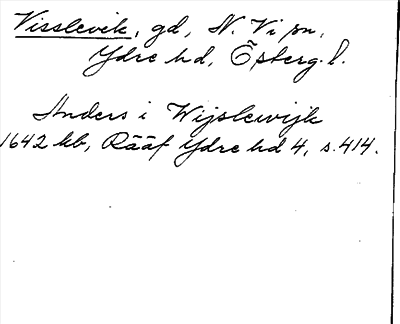 Visslevik, gd, N. Vi sn,
Ydre hd, Östergl.
Anders i Wijslewijk
1642 kb, Rääf Ydre hd 4, s. 414.